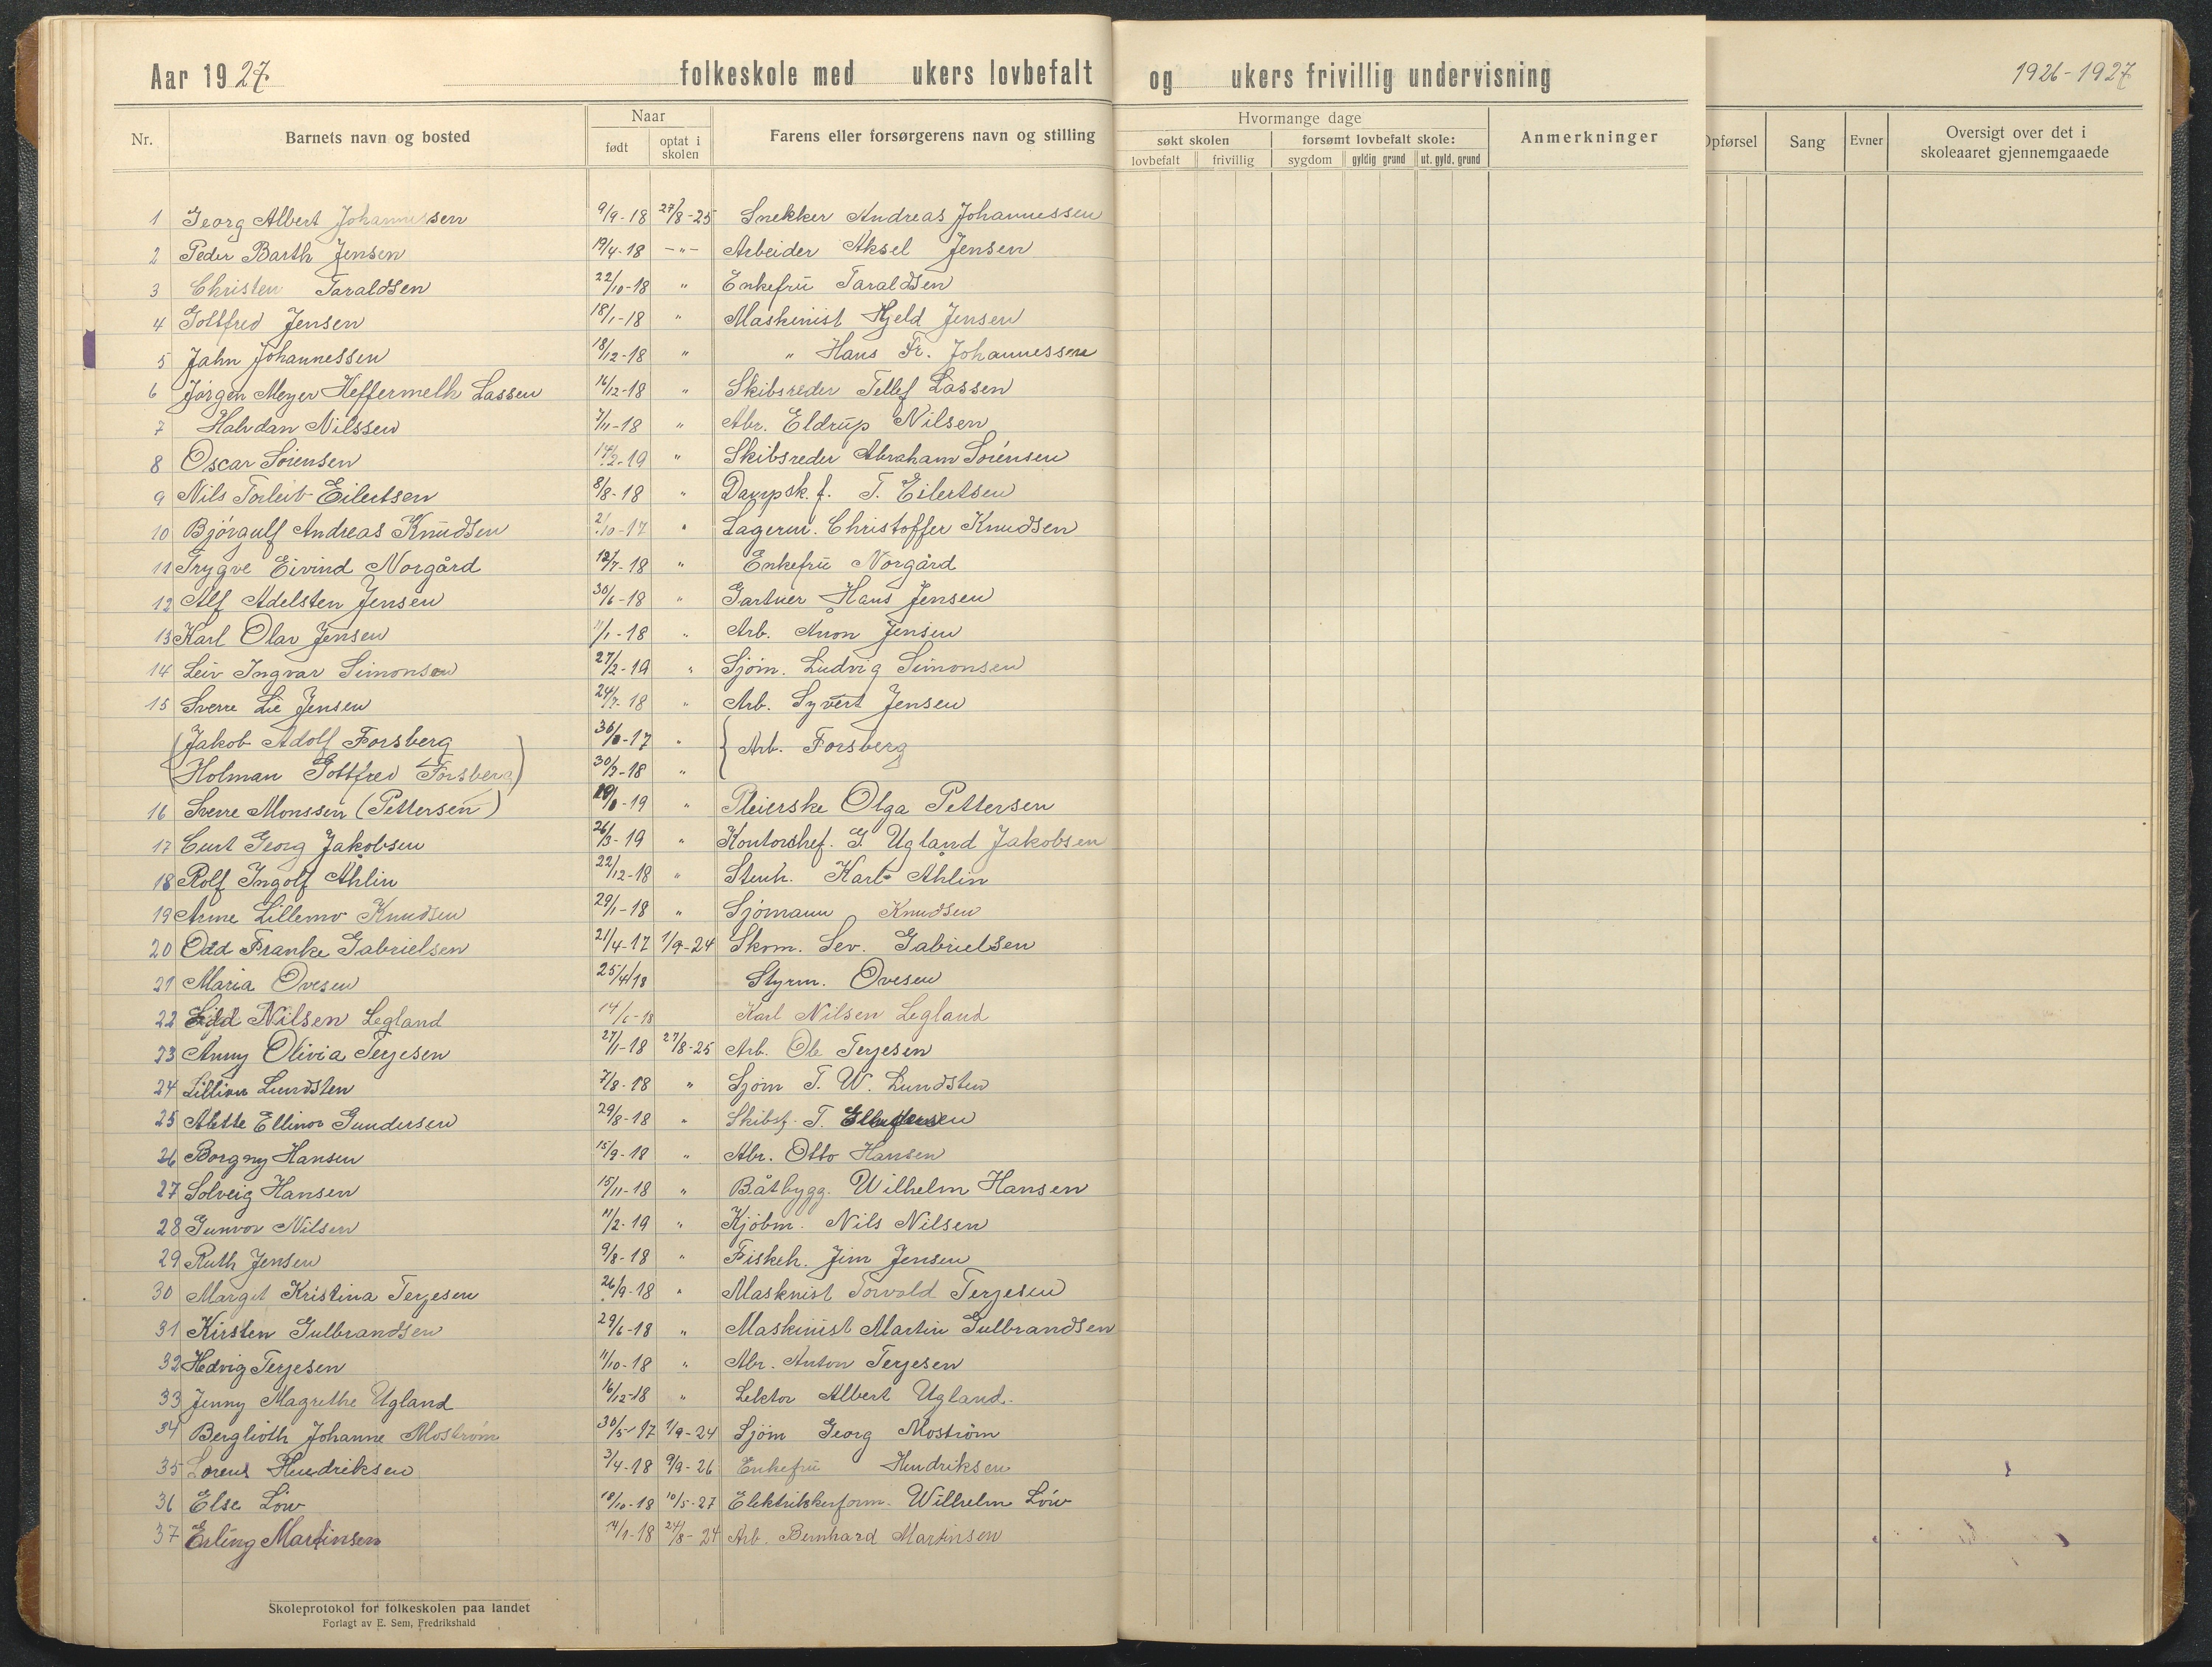 Aar 1927. folkeskole med ukers lovbefalt og ukers frivillig undervisning 1926-1927
Nr. Barnets navn og bosted Naar født optat i skolen Farens eller forsørgerens navn og stilling Hvormange dage søkt skolen lovbefalt frivillig forsømt lovbefalt skole: sygdom gyldig grund ut. gyld. grund Anmerkninger Opførsel Sang Evner Oversigt over det i skoleaaret gjennemgaaede
1 Georg Albert Johannessen 9/9-18 27/8-25 Snekker Andreas Johannessen
2 Peder Barth Jensen 19/4-18 -"- Arbeider Aksel Jensen
3 Christen Taraldsen 22/10-18 " Enkefru Taraldsen
4 Gottfred Jensen 18/1-18 " Maskinist Kjeld Jensen
5 Jahn Johannessen 18/12-18 " " Hans Fr. Johannessen
6 Jørgen Meyer Heffermelh Lassen 16/12-18 " Skibsreder Tellef Lassen
7 Halvdan Nilssen 7/11-18 " Abr. Eldrup Nilsen
8 Oscar Sørensen 14/2-19 " Skibsreder Abraham Sørensen
9 Nils Torleiv Eilertsen 8/8-18 " Dampsk.f. T. Eilertsen
10 Bjørgulf Andreas Knudsen 2/10-17 " Lagerm. Christoffer Knudsen
11 Trygve Eivind Norgård 12/7-18 " Enkefru Norgård
12 Alf Adelsten Jensen 30/6-18 " Gartner Hans Jensen
13 Karl Olav Jensen 11/1-18 " Arb. Aron Jensen
14 Leiv Ingvar Simonsen 27/2-19 " Sjøm. Ludvig Simonsen
15 Sverre Lie Jensen 24/7-18 " Arb. Syvert Jensen
(Jakob Adolf Forsberg 30/8-17 " { Arb. Forsberg
(Holman Gottfred Forsberg) 30/3-18 "
16 Sverre Monssen (Pettersen) -19 " Pleierske Olga Pettersen
17 Curt Georg Jakobsen 26/3-19 " Kontorchef. G. Ugland Jakobsen
18 Rolf Ingolf Ahlin 22/12-18 " Stenh. Karl Ahlin
19 Arne Lillemo Knudsen 29/1-18 " Sjømann Knudsen
20 Odd Franke Gabrielsen 21/4-17 1/9-24 Skom. Sev. Gabrielsen
21 Maria Ovesen 25/4/18 Styrm. Ovesen
22 Nilsen Legland 14/6-18 Karl Nilsen Legland
23 Anny Olivia Terjesen 27/1-18 27/8-25 Arb. Ole Terjesen
24 Lillian Lundsten 7/8-18 " Sjøm T. W. Lundsten
25 Alette Ellinor Gundersen 29/8-18 " Skibsf. T.
26 Borgny Hansen 15/9-18 " Abr. Otto Hansen
27 Solveig Hansen 15/11-18 " Båtbygg. Wilhelm Hansen
28 Gunvor Nilsen 11/2-19 " Kjøbm. Nils Nilsen
29 Ruth Jensen 9/8-18 " Fiskeh. Jim Jensen
30 Marget Kristina Terjesen 26/9-18 " Masknist Torvald Terjesen
31 Kirsten Gulbrandsen 29/6-18 " Maskinist Martin Gulbrandsen
32 Hedvig Terjesen 11/10-18 " Abr. Anton Terjesen
33 Jenny Magrethe Ugland 16/12-18 " Lektor Albert Ugland.
34 Berglioth Johanne Mostrøm 30/5-17 1/9-24 Sjøm Georg Mostrøm
35 Lorens Hendriksen 3/4-18 9/9-26 Enkefru Hendriksen
36 Else Löw 18/10-18 10/5-27 Elektrikerform. Wilhelm Löw
37 Erling Martinsen 14/1-18 24/8-24 Arb. Bernhard Martinsen
Skoleprotokol for folkeskolen paa landet
Forlagt av E. Sem, Fredrikshald